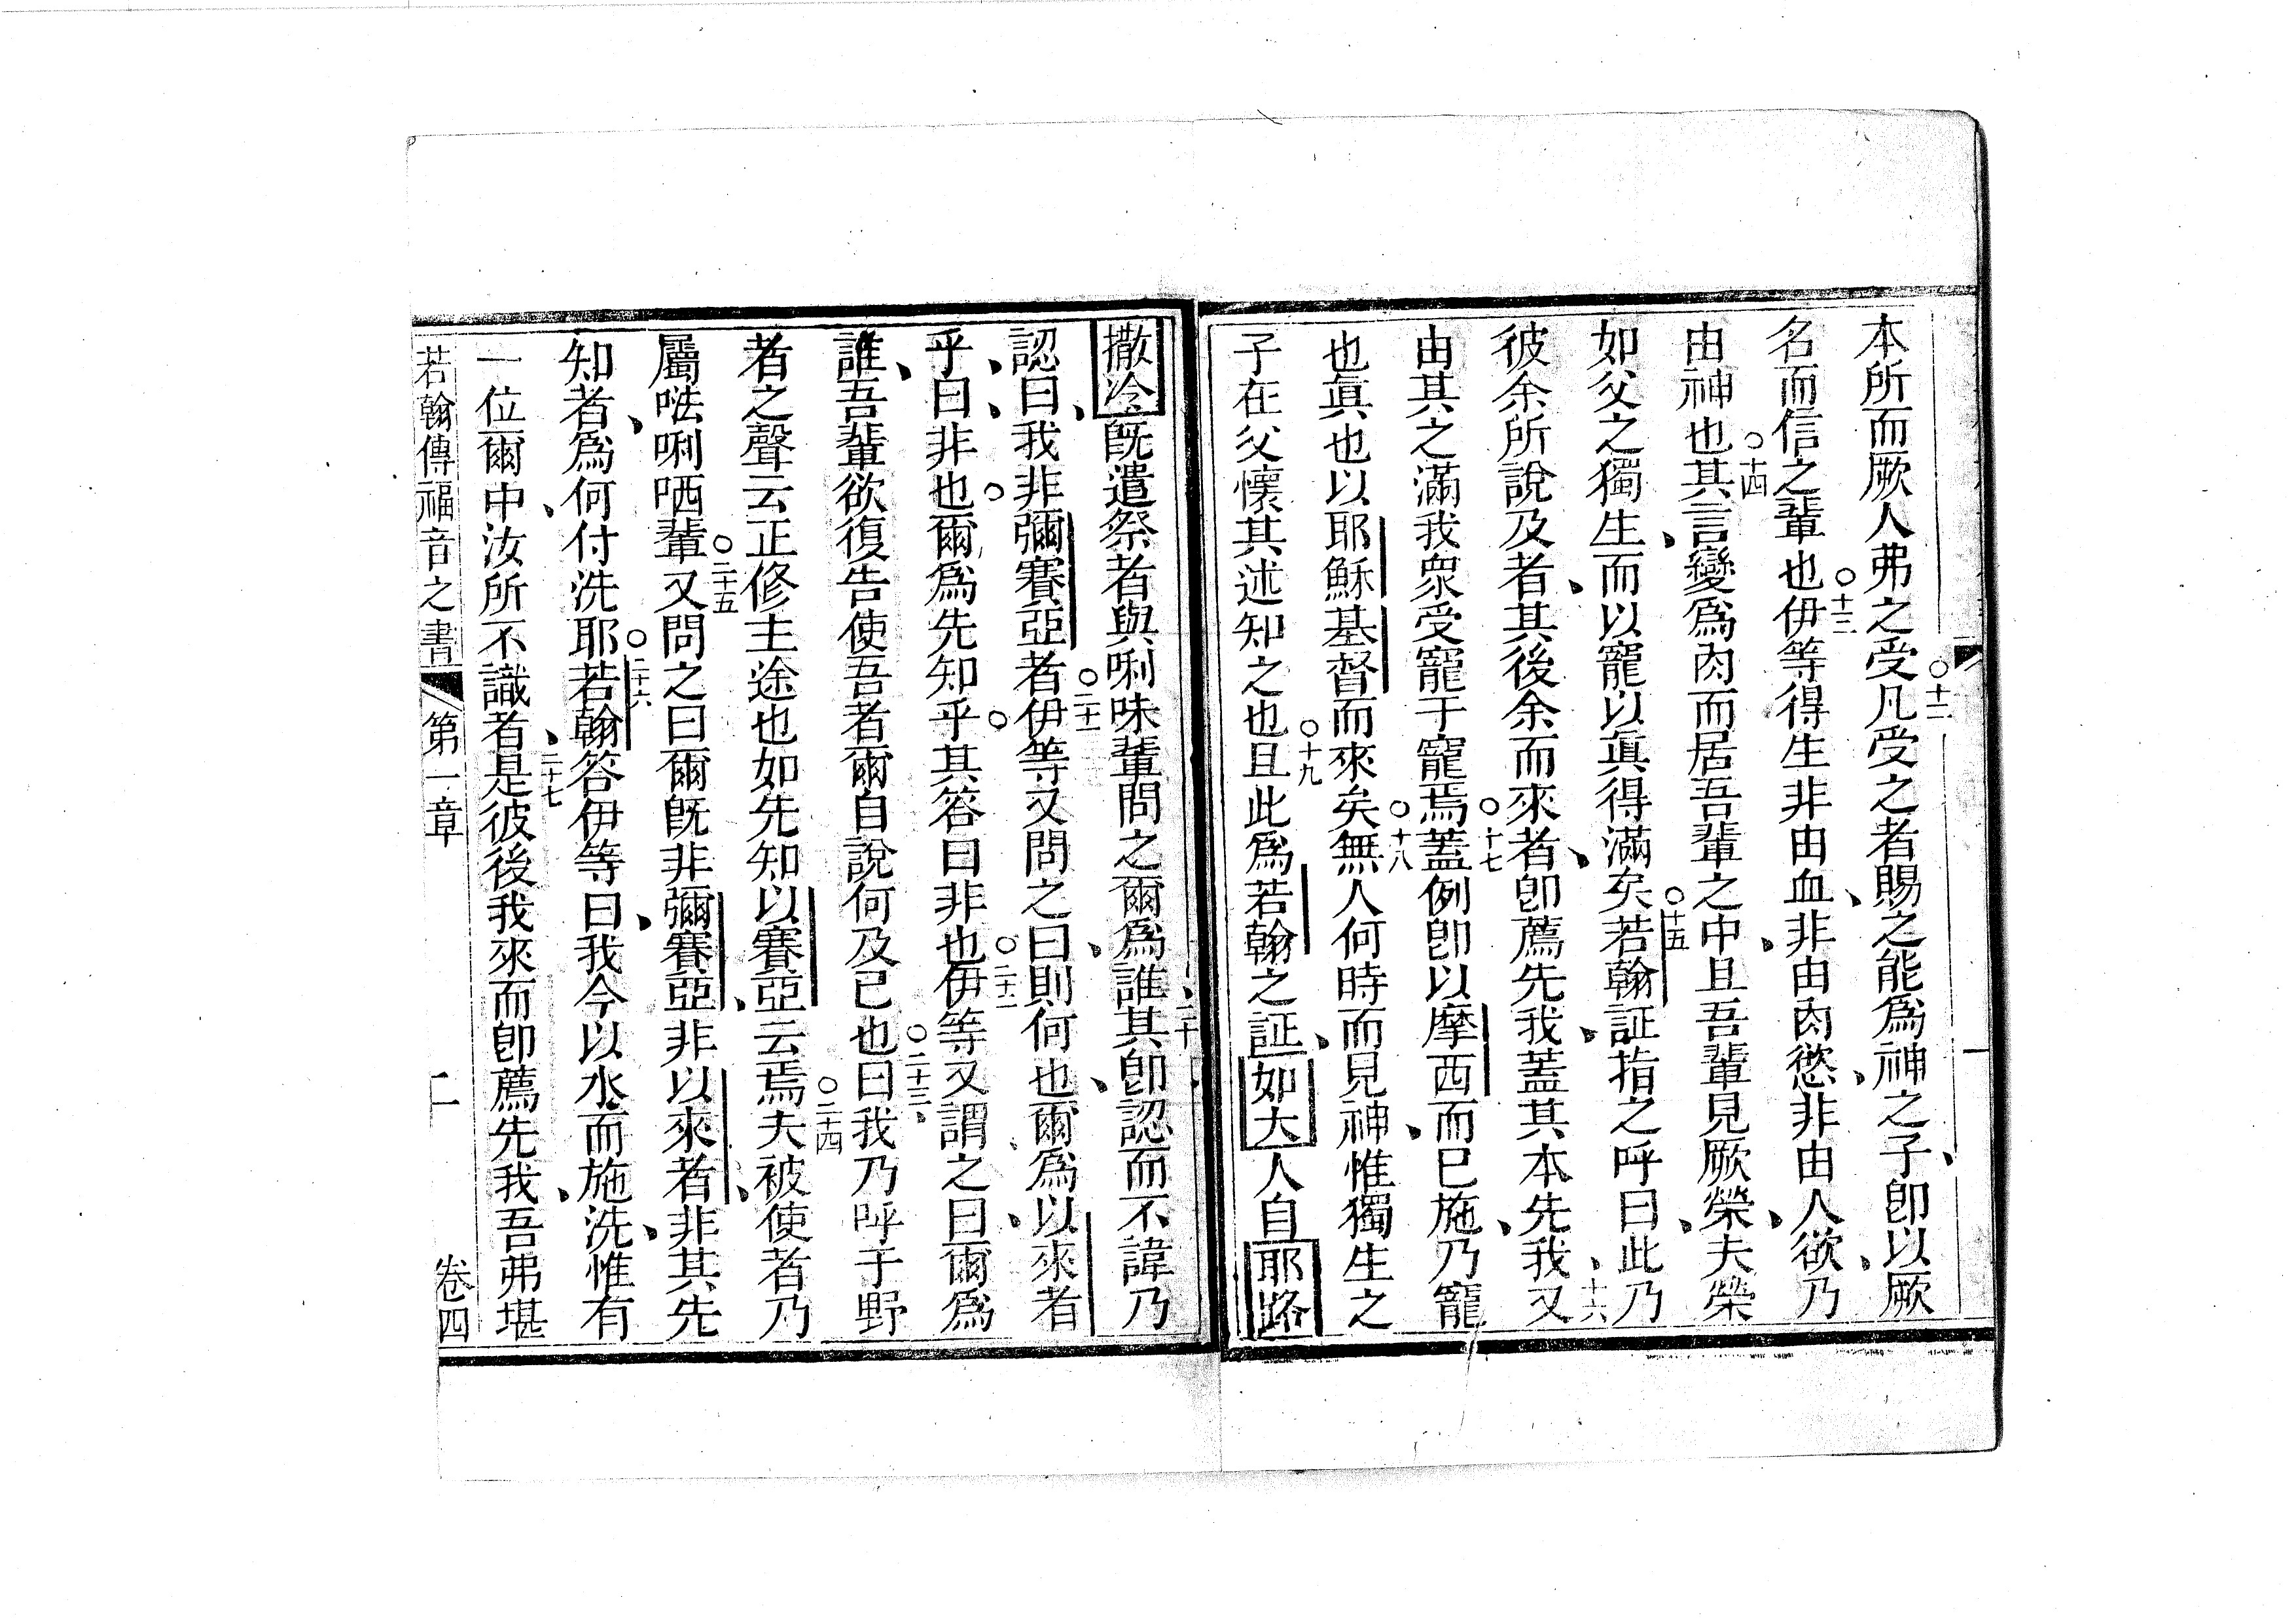 本所而厥人弗之受凡受之者賜之能爲神之子、卽以厥
○十二
名而信之輩也伊等得生非由血、非由肉慾、非由人欲、乃
○十三
由神也其言變爲肉而居吾輩之中、且吾輩見厥榮、夫榮
○十四
如父之獨生、而以寵以眞得滿矣若翰証指之呼曰、此乃
○十五
彼余所說及者、其後余而來者、卽薦先我、蓋其本先我、又
十六
由其之滿我衆受寵于寵焉蓋例卽以摩西而已施、乃寵
○十七
也眞也以耶穌基督而來矣無人何時而見神、惟獨生之
○十八
子在父懷其述知之也且此爲若翰之証、如大人自耶路
○十九
撒冷旣遣祭者與唎味輩問之爾爲誰其卽認而不諱乃
二十
認曰、我非彌賽亞者伊等又問之曰、則何也、爾爲以來者
○二十一
乎、曰、非也。爾爲先知乎。其答曰非也伊等又謂之曰、爾爲
○二十二
誰、吾輩欲復告使吾者爾自說何及已也曰我乃呼于野
○二十三
者之聲云正修主途也如先知以賽亞云焉夫被使者乃
○二十四
屬𠵽唎哂輩又問之曰爾旣非彌賽亞、非以來者、非其先
○二十五
知者、爲何付洗耶若翰答伊等曰、我今以水而施洗、惟有
○二十六
一位爾中、汝所不識者、是彼後我來而卽薦先我、吾弗堪
二十七
若翰傳福音之書 第一章 二 卷四